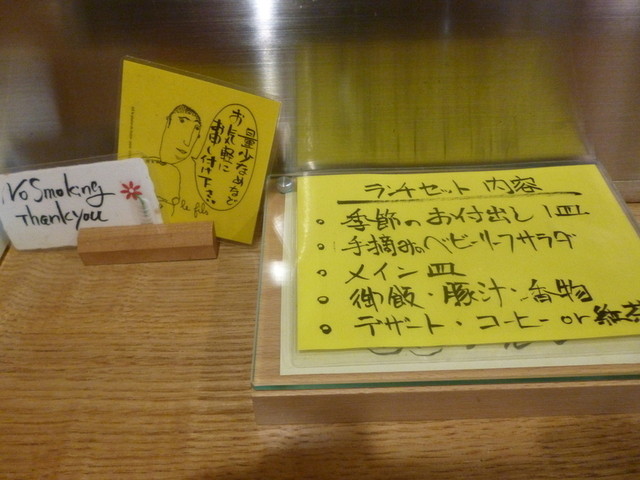 No Smoking
Thank you
量少なめなど
お気軽に
申し付け下さい
ランチセット 内容
・季節のお付出し 1皿
・手摘みのベビーリーフサラダ
・メイン皿
・御飯・豚汁・香物
・デザート・コーヒー or 紅茶